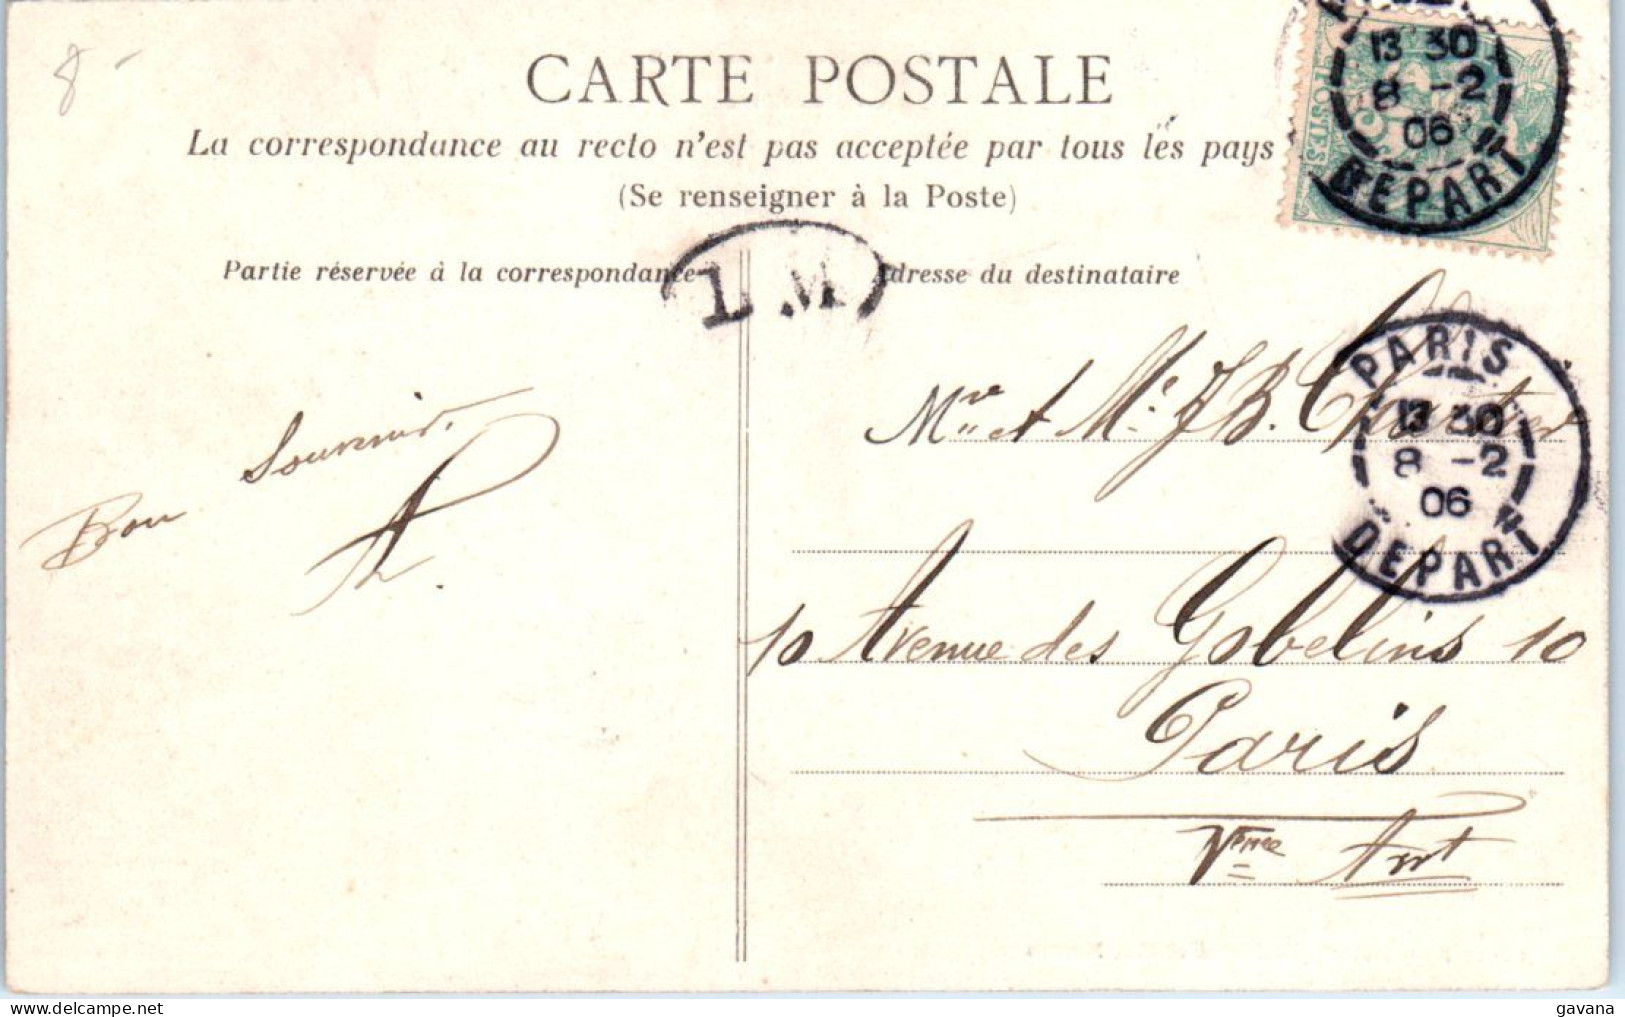 8 -
CARTE POSTALE
La correspondance au recto n'est pas acceptée par tous les pays
(Se renseigner à la Poste)
Partie réservée à la correspondance
Adresse du destinataire
L M
POSTES
13 30
8 -2
06
DEPART
PARIS
13 30
8 -2
06
DEPART
Bon Souvenir.
Mre et Me J B.
10 Avenue des Gobelins 10
Paris
Vème Arrt
delcampe.net
gavana